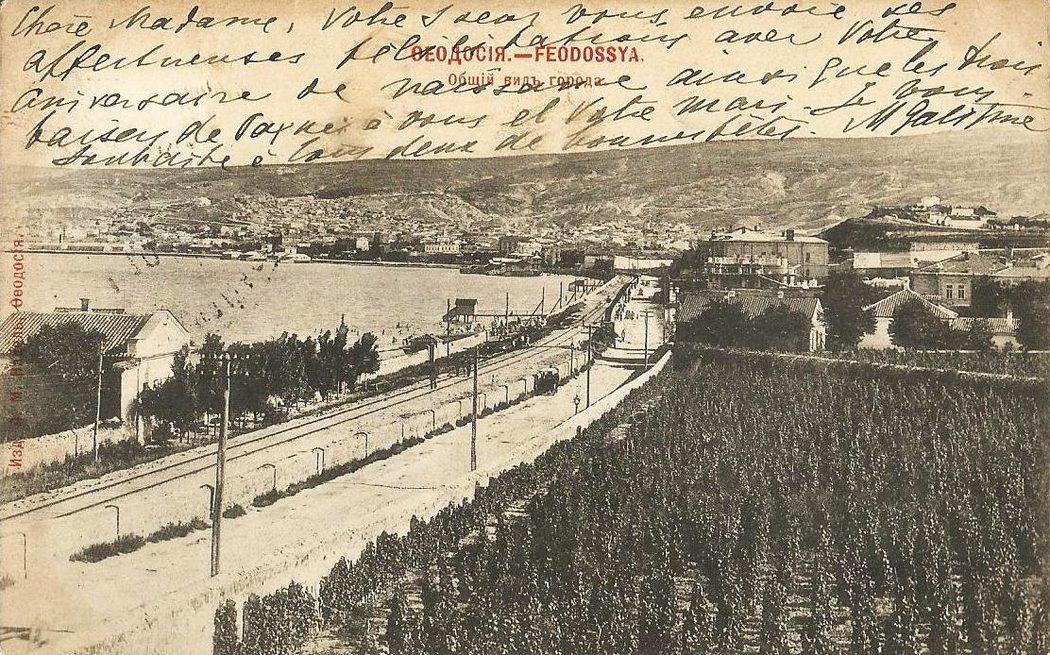 Chère Madame, Votre Soeur vous envoie ses
affectueuses félicitations avec Votre
ѲЕОДОСІЯ.—FEODOSSYA.
Общій видъ города.
anniversaire de naissance ainsi que les trois
baisers de Paques à vous et Votre mari. Je vous
souhaite à tous deux de bonnes fêtes.
Изд. М. Ѳеодосія.